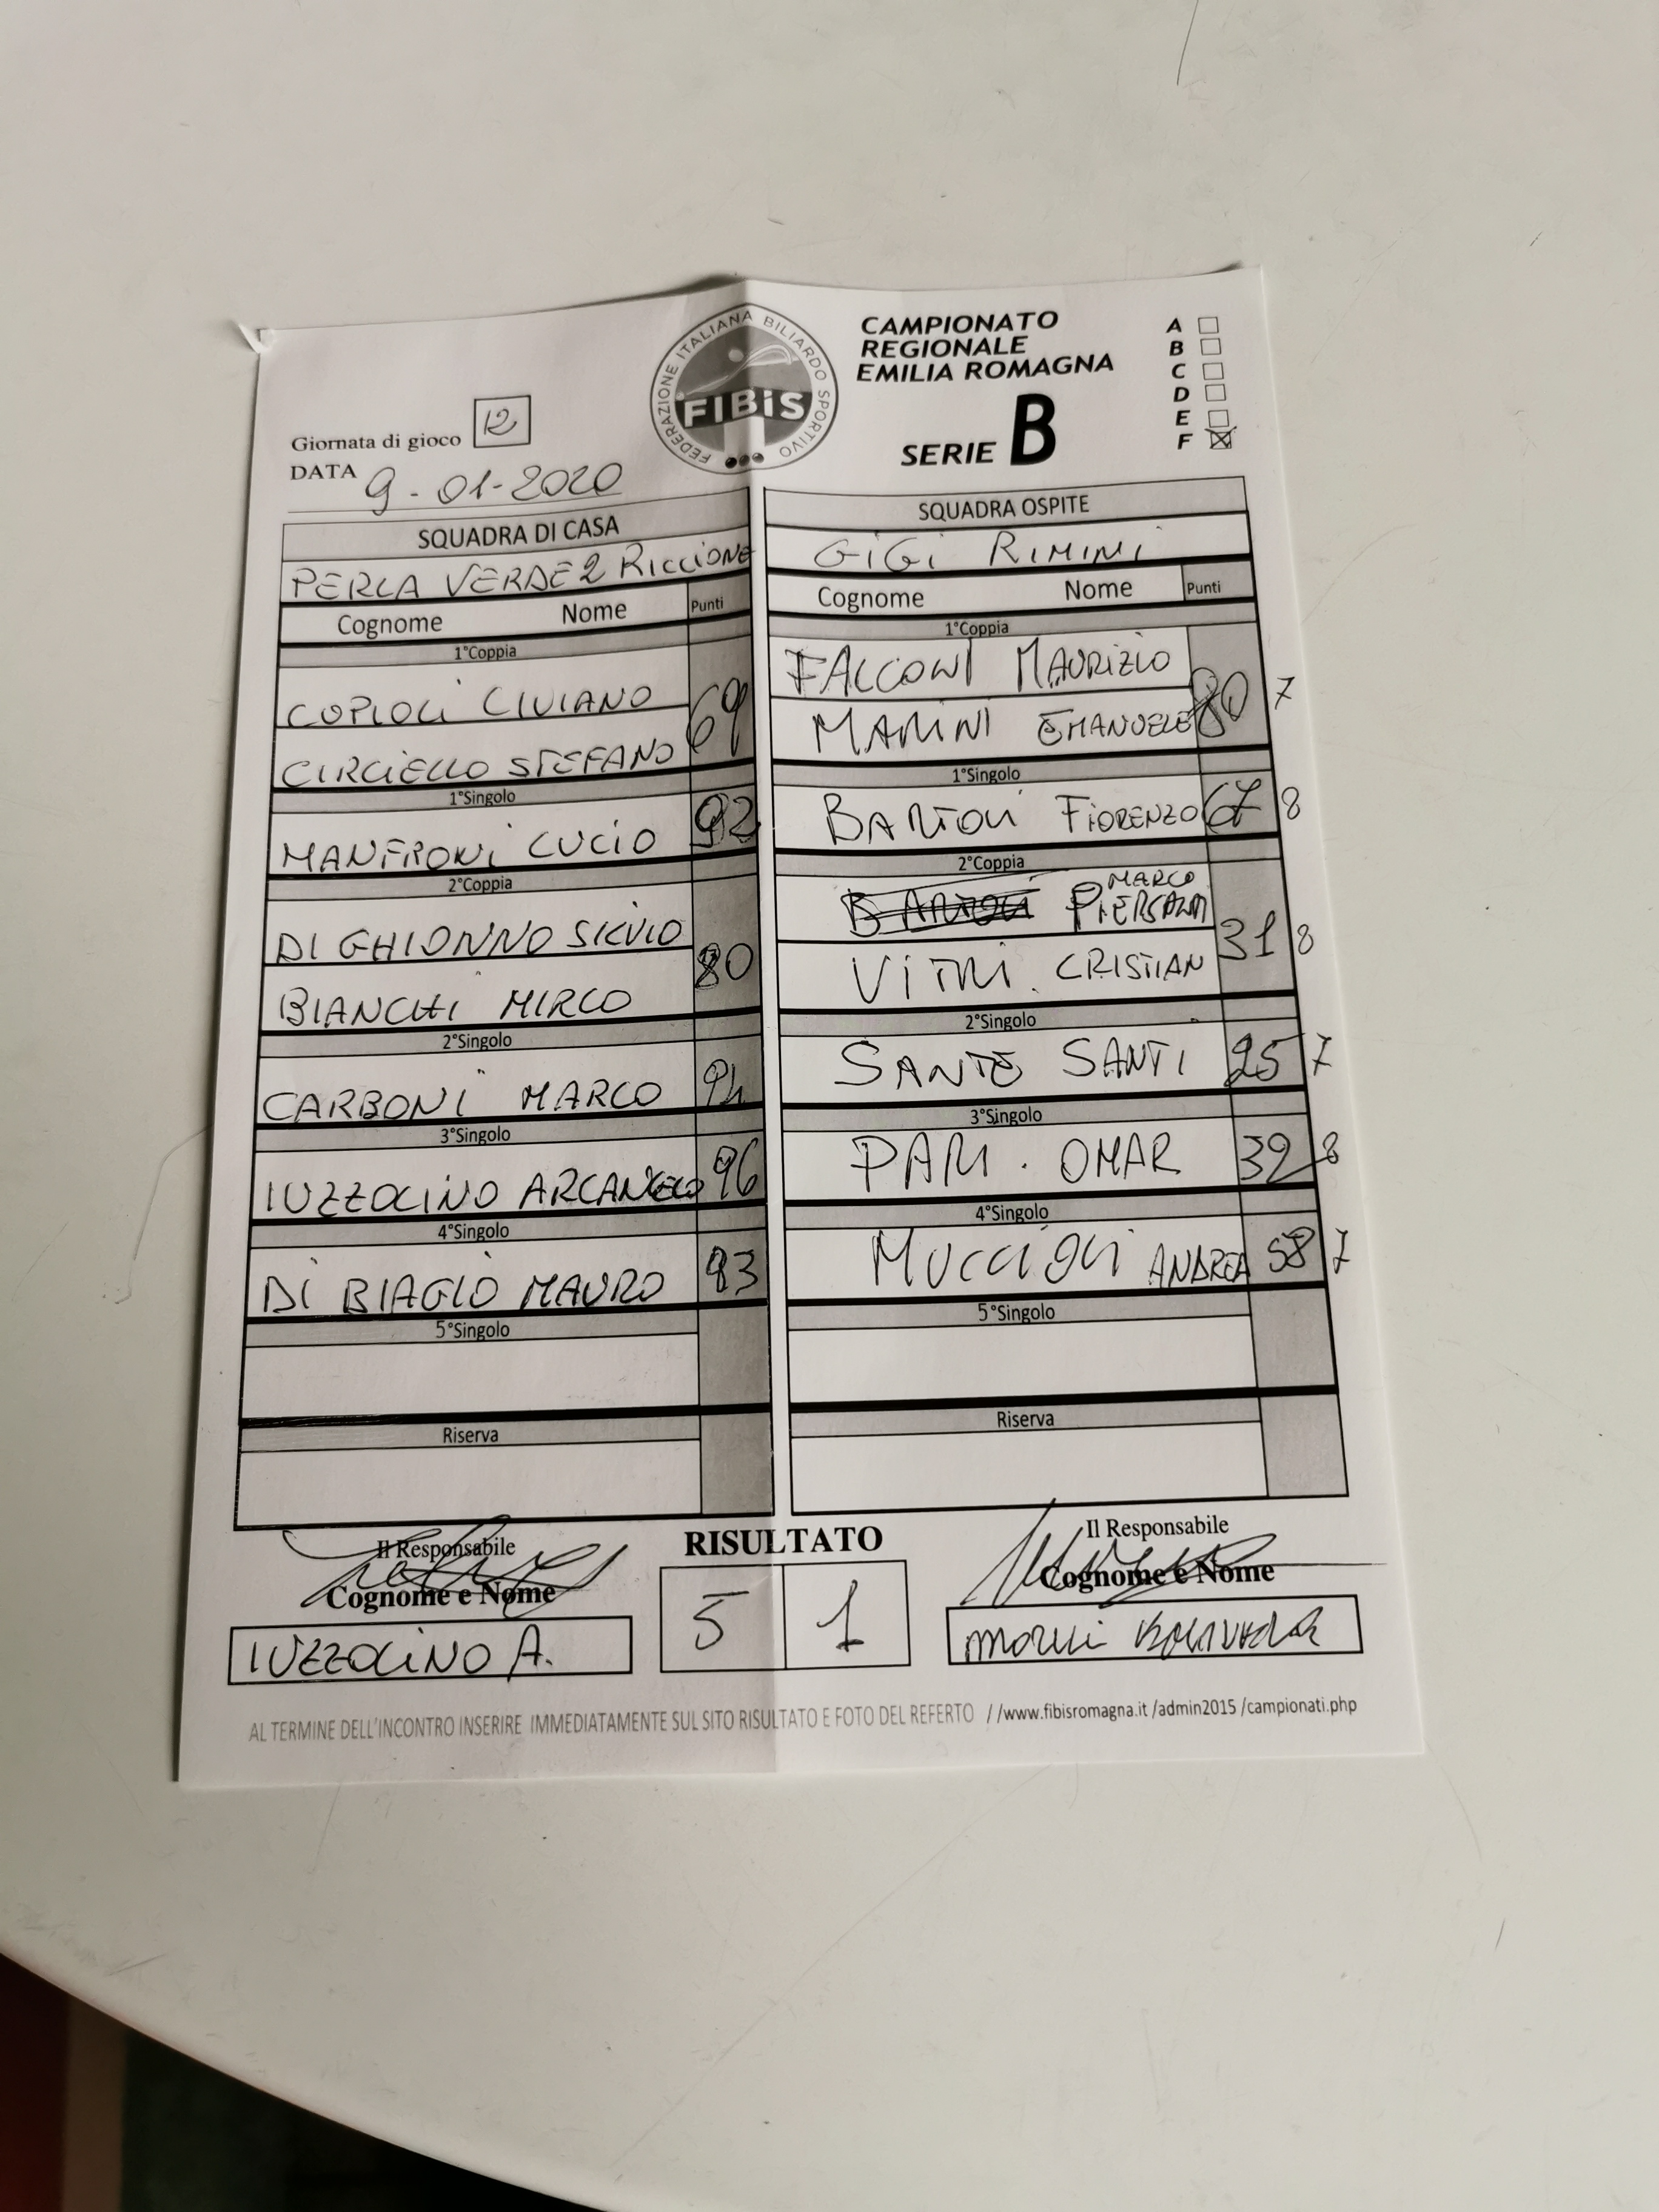 FEDERAZIONE ITALIANA BILIARDO SPORTIVO
FIBiS
CAMPIONATO
REGIONALE
EMILIA ROMAGNA
SERIE B
A
B
C
D
E
F
Giornata di gioco 12
DATA 9-01-2020
SQUADRA DI CASA
PERLA VERDE 2 RICCIONE
Cognome Nome Punti
1°Coppia
COPIOLI LIVIANO
CIRCIELLO STEFANO
69
1°Singolo
MANFRONI LUCIO 92
2°Coppia
DI GHIONNO SILVIO
BIANCHI MIRCO
80
2°Singolo
CARBONI MARCO 94
3°Singolo
IUZZOLINO ARCANGELO 96
4°Singolo
DI BIAGIO MAURO 83
5°Singolo
Riserva
SQUADRA OSPITE
GIGI RIMINI
Cognome Nome Punti
1°Coppia
FALCONI MAURIZIO
MARINI EMANUELE
80 7
1°Singolo
BARTOLI FIORENZO 67 8
2°Coppia
MARCO
VITRI. CRISTIAN
31 8
2°Singolo
SANTE SANTI 25 7
3°Singolo
PARI. OMAR 39 8
4°Singolo
MUCCIOLI ANDREA 58 7
5°Singolo
Riserva
Il Responsabile
Cognome e Nome
IUZZOLINO A.
RISULTATO
5 1
Il Responsabile
Cognome e Nome
AL TERMINE DELL'INCONTRO INSERIRE IMMEDIATAMENTE SUL SITO RISULTATO E FOTO DEL REFERTO //www.fibisromagna.it /admin2015 /campionati.php